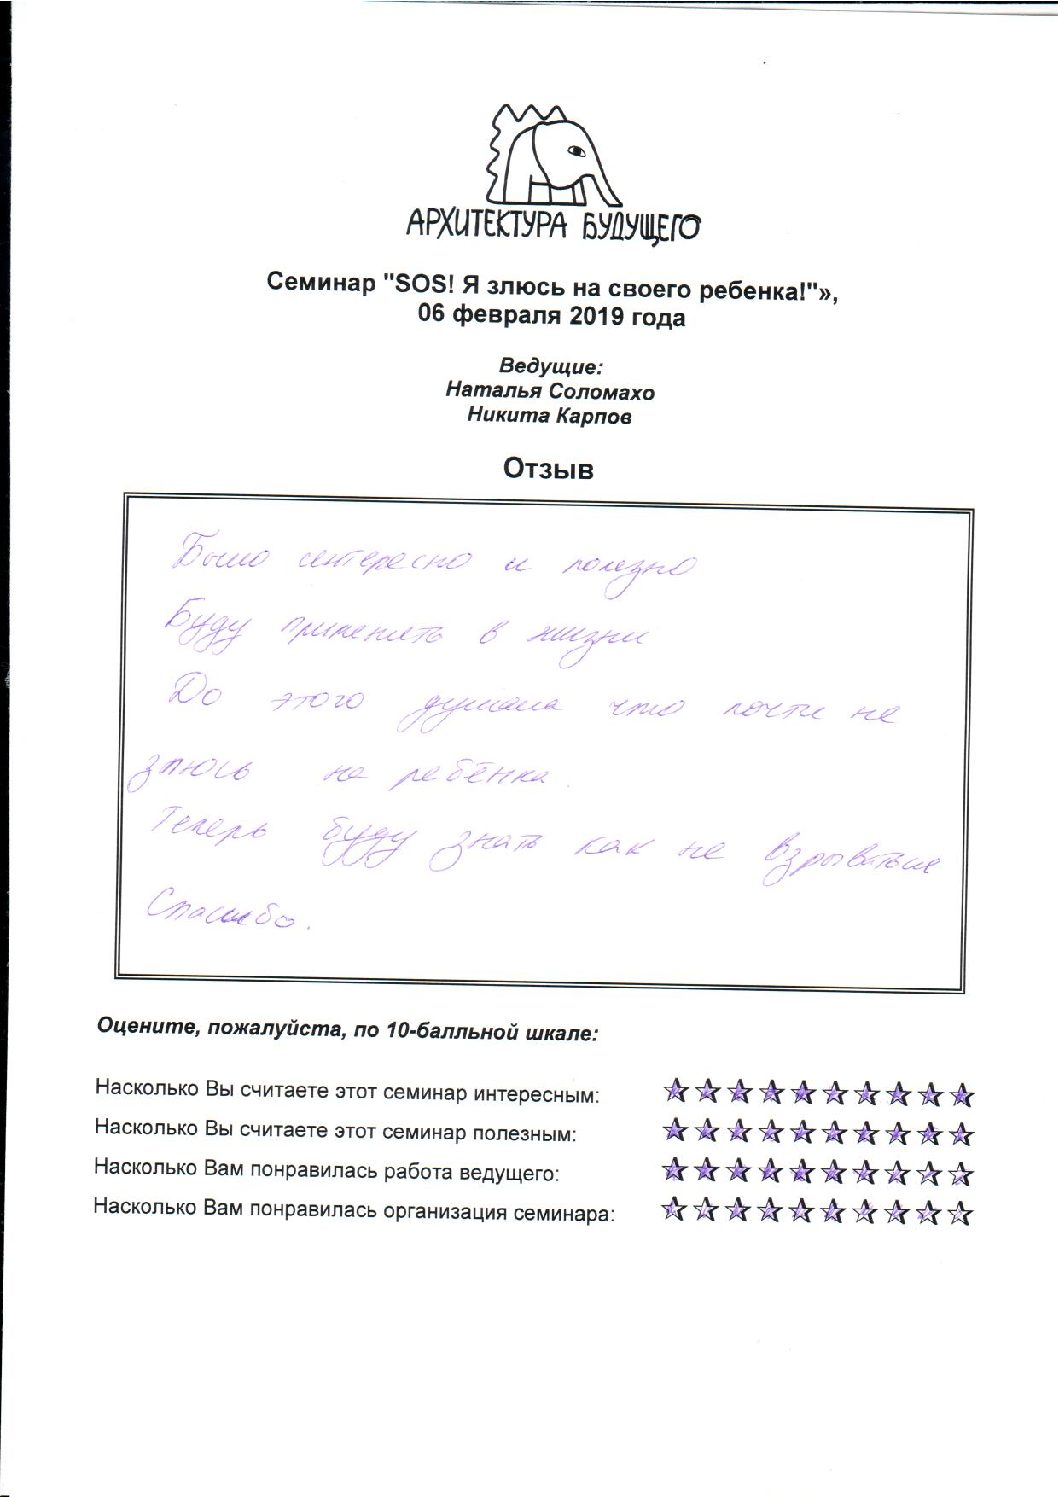 АРХИТЕКТУРА БУДУЩЕГО
Семинар "SOS! Я злюсь на своего ребенка!"»,
06 февраля 2019 года
Ведущие:
Наталья Соломахо
Никита Карпов
Отзыв
Было интересно и полезно
Буду применять в жизни
До этого думала что почти не
злюсь на ребёнка.
Теперь буду знать как не взрываться
Спасибо.
Оцените, пожалуйста, по 10-балльной шкале:
Насколько Вы считаете этот семинар интересным:
Насколько Вы считаете этот семинар полезным:
Насколько Вам понравилась работа ведущего:
Насколько Вам понравилась организация семинара: